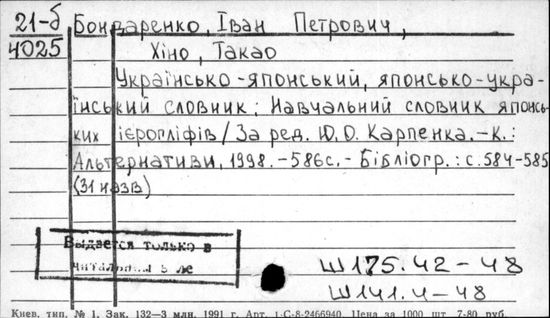 21-б
4025
Бондаренко, Іван Петрович,
Хіно, Такао
Українсько-японський, японсько-укра-
їнський словник: Навчальний словник японсь-
ких ієрогліфів / За ред. Ю.О. Карпенка. – К.:
Альтернативи, 1998. – 586с. – Бібліогр.: с. 584-585
(31 назв)
Выдается только в
читальном зале
Ш175.42-48
Ш141.4-48
Киев. тип. № 1. Зак. 132—3 млн. 1991 г. Арт. 1-С-8-2466940. Цена за 1000 шт 7-80 руб.